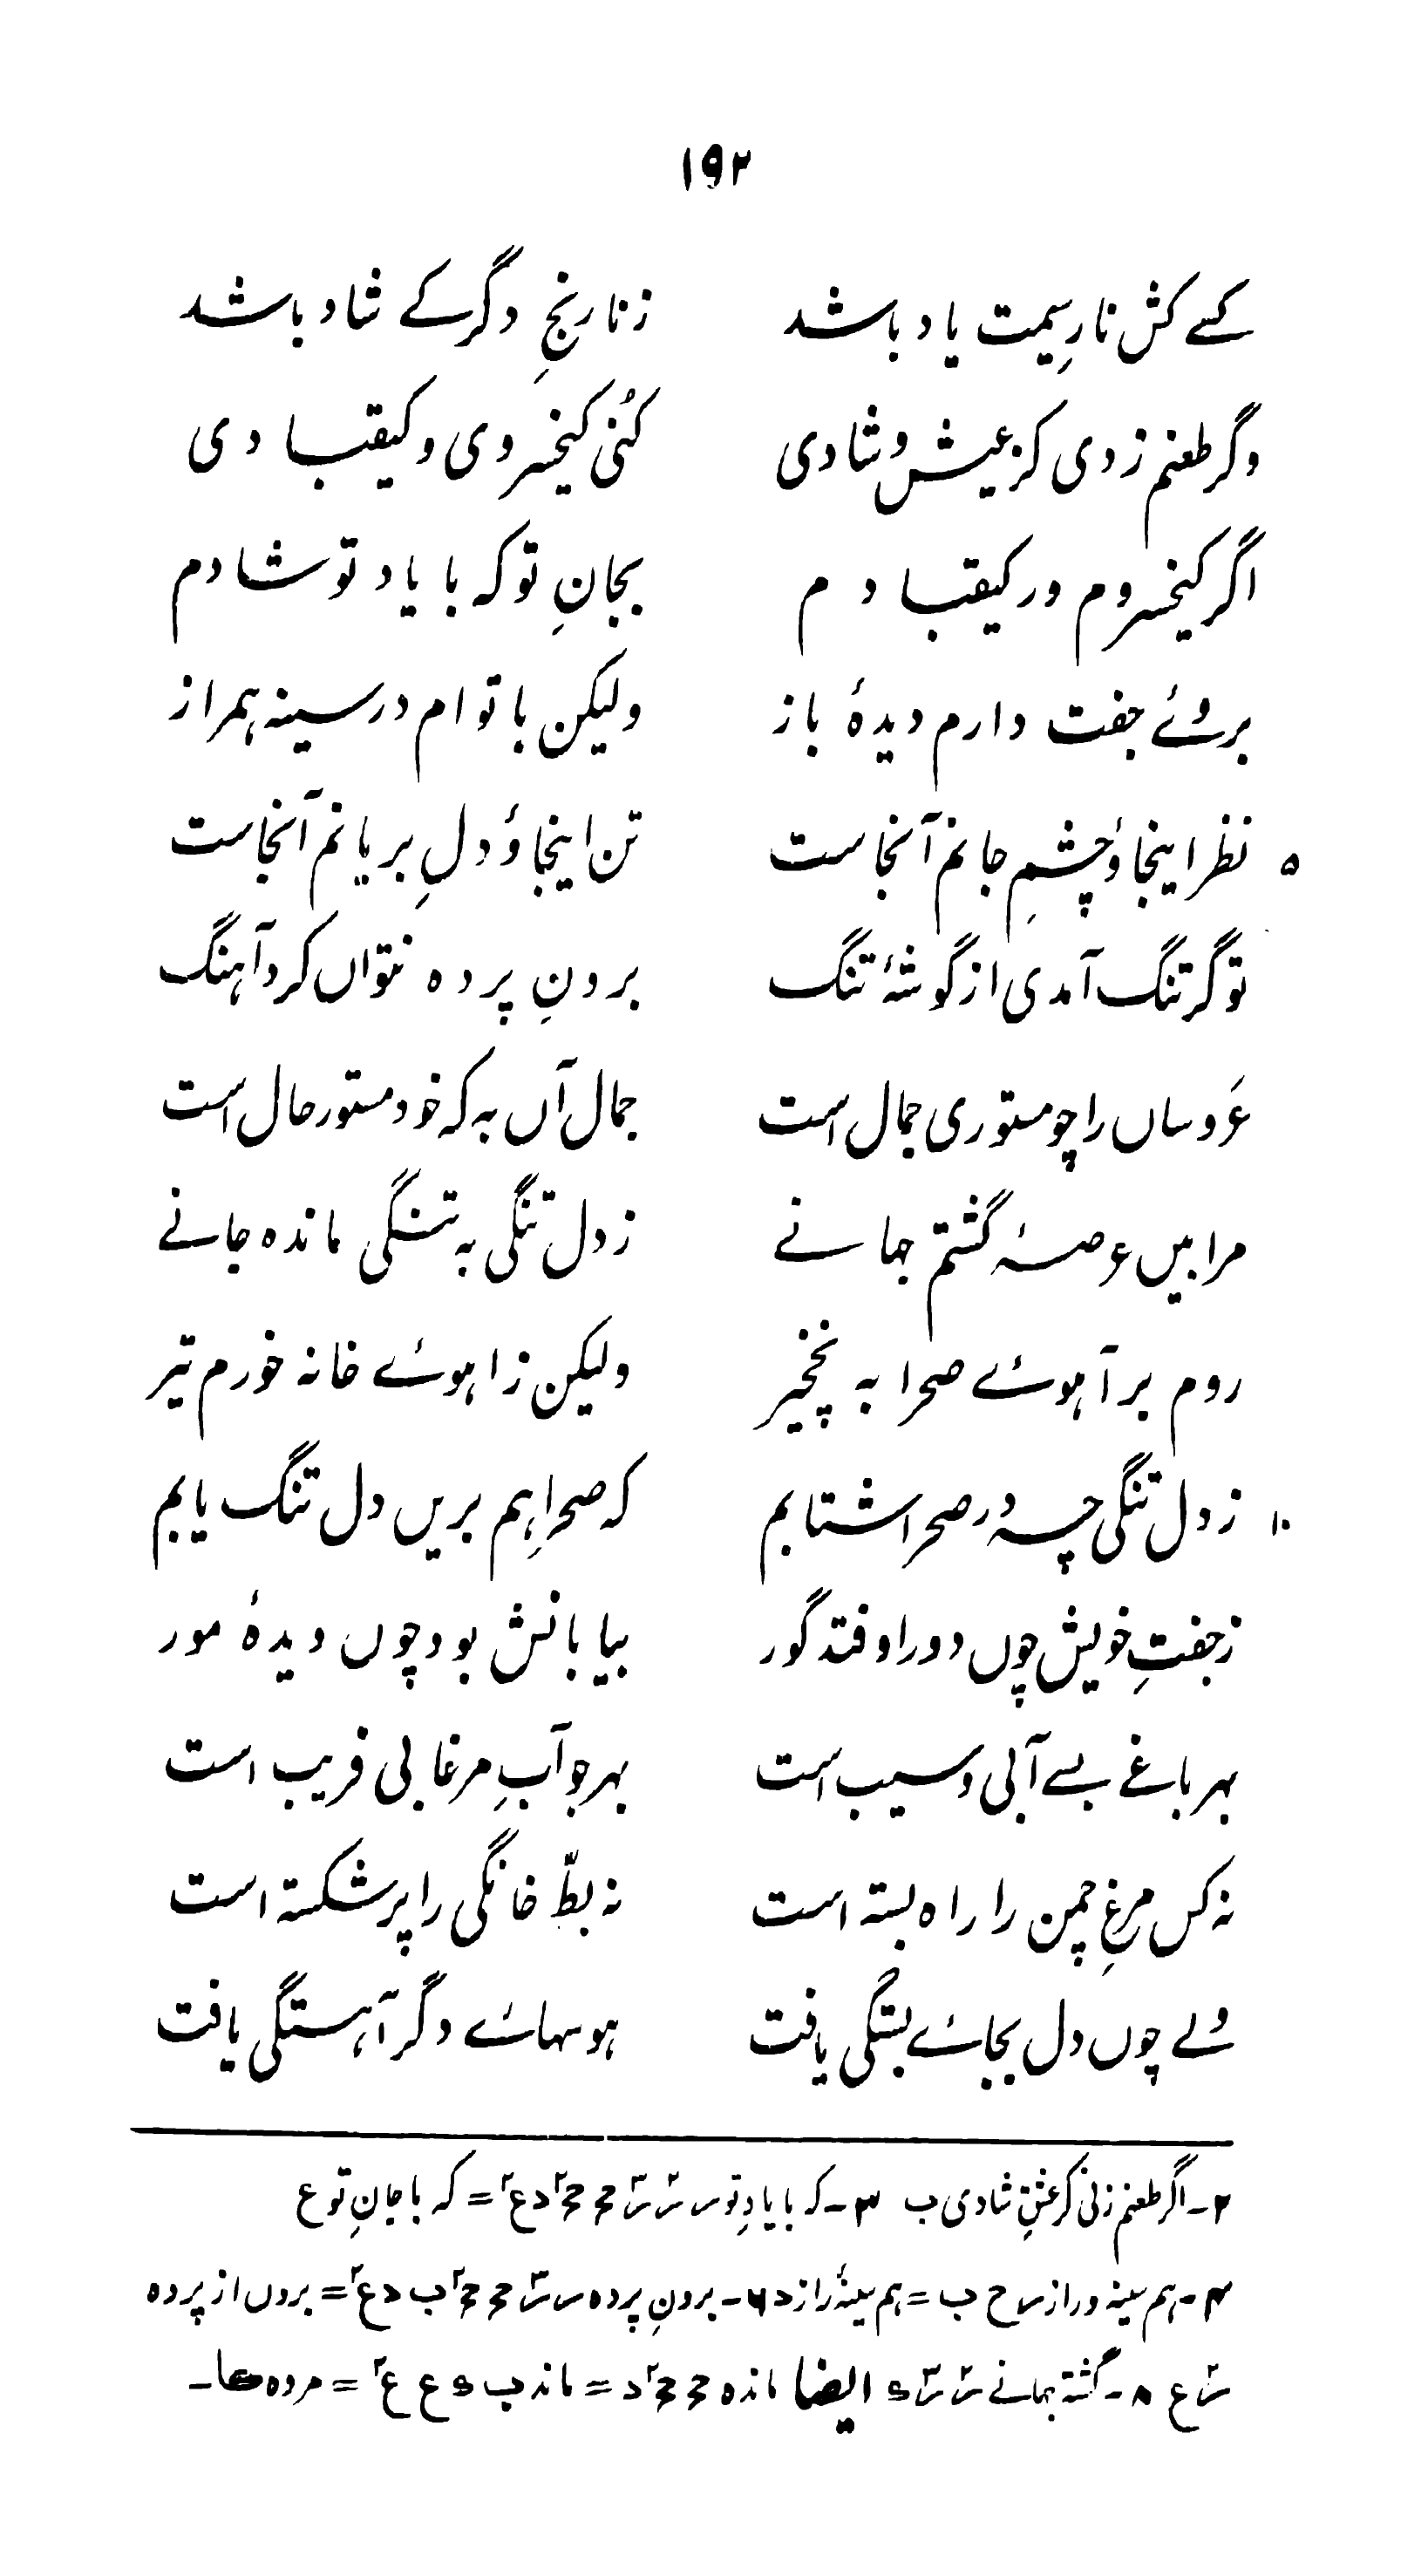 ۱۹۲
کسے کش نارِ سیمت یاد باشد زنارنجِ دگر کے شاد باشد
وگر طعنم زدی کز عیش و شادی کُنی کیخسروی و کیقبادی
اگر کیخسروم ور کیقبادم بجانِ تو که با یاد تو شادم
بروئے جفت دارم دیدهٔ باز ولیکن با تو ام در سینه همراز
۵ نظر اینجا وُ چشمِ جانم آنجاست تن اینجا وُ دلِ بریانم آنجاست
تو گر تنگ آمدی از گوشهٔ تنگ برونِ پرده نتواں کرد آهنگ
عَروساں را چو مستوری جمال است جمال آں به که خود مستور حال است
مرا بیں عرصهٔ گشتم جهانے زدل تنگی به تنگی مانده جانے
روم بر آهوئے صحرا به نخچیر ولیکن ز اهوئے خانه خورم تیر
۱۰ زدل تنگی چه در صحرا شتابم که صحرا هم بریں دل تنگ یابم
زجفتِ خویش چوں دور اوفتد گور بیابانش بود چوں دیدهٔ مور
بهر باغے بسے آبی و سیب است بهر جو آبِ مرغابی فریب است
نه کس مرغِ چمن را راه بسته است نه بطّ خانگی را پر شکسته است
ولے چوں دل بجائے بستگی یافت هوسهائے دگر آهستگی یافت
۲- اگر طعنم زنی کز عشقِ شادی ب ۳- که با یادِ تو = که با جانِ تو ع
۴- هم سینه و راز س ح ب = هم سینهٔ راز د ۶- برونِ پرده = بروں از پرده
ع ۸- گشته جهانے ایضا مانده = ماند ب = مرده